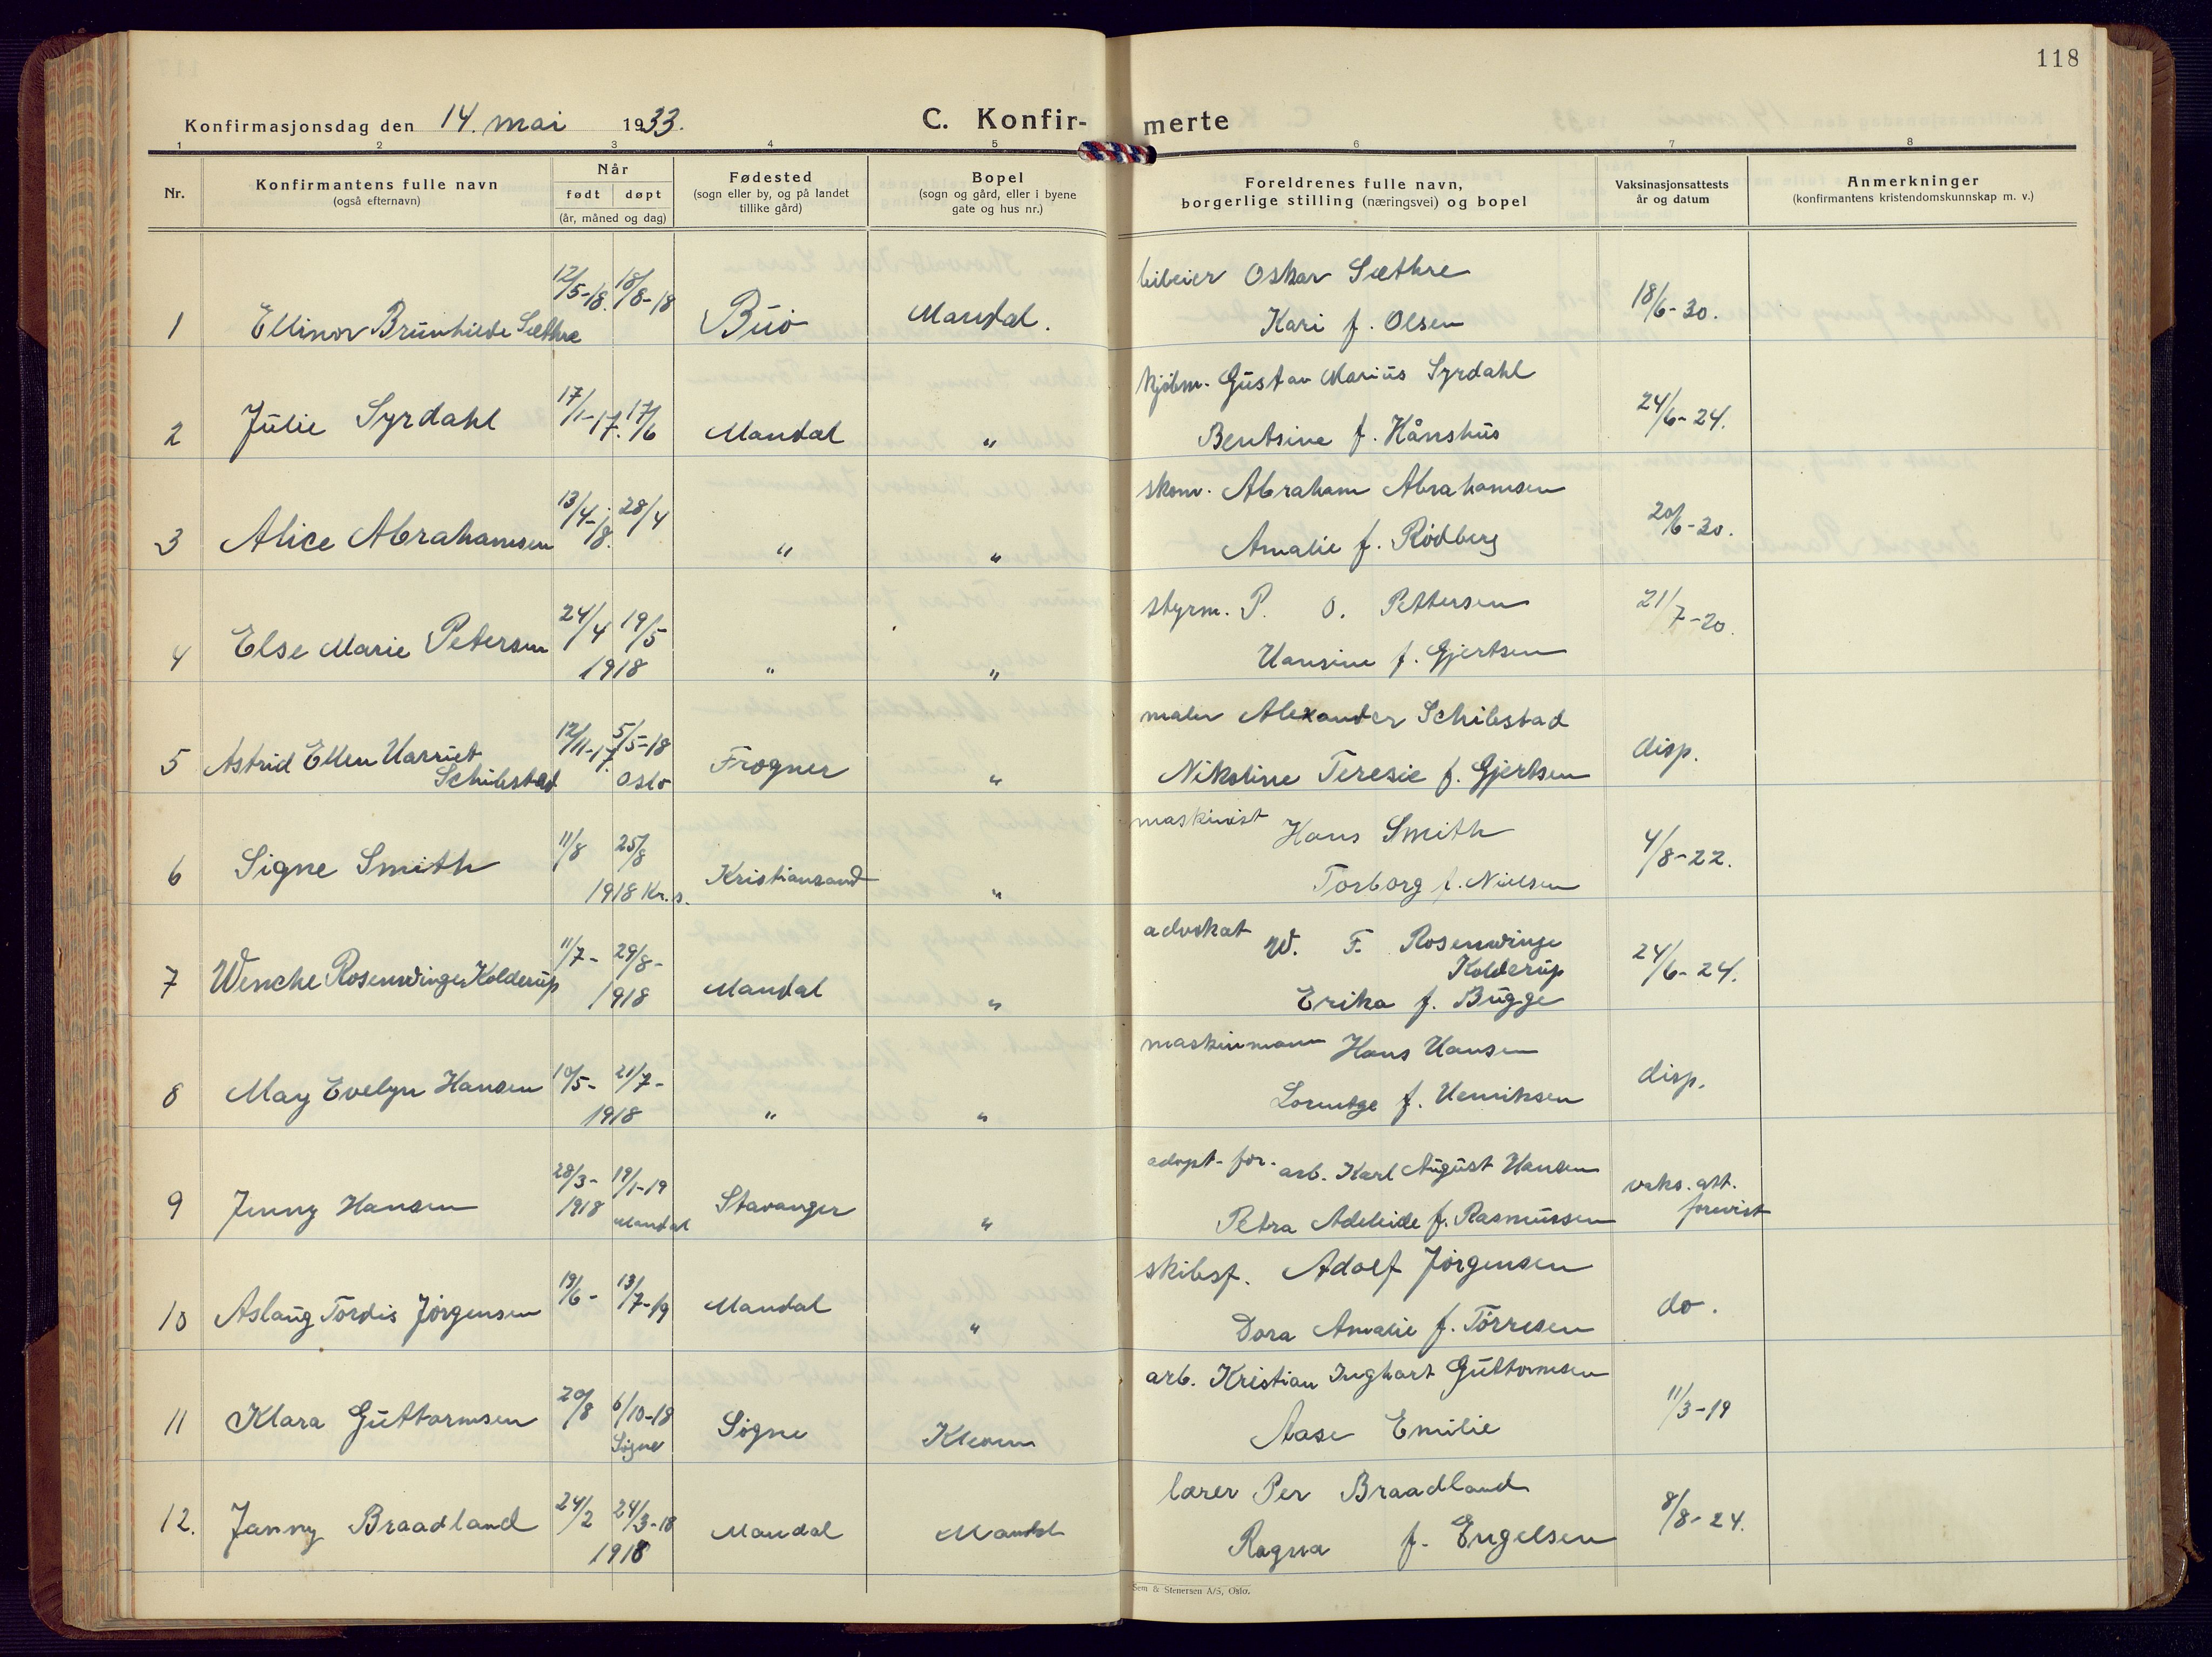 118
Konfirmasjonsdag den 14. mai 1933.
C. Konfir- merte
1 2 3 4 5 6 7 8
Nr.
Konfirmantens fulle navn
(også efternavn)
Når
født døpt
(år, måned og dag)
Fødested
(sogn eller by, og på landet
tillike gård)
Bopel
(sogn og gård, eller i byene
gate og hus nr.)
Foreldrenes fulle navn,
borgerlige stilling (næringsvei) og bopel
Vaksinasjonsattests
år og datum
Anmerkninger
(konfirmantens kristendomskunnskap m. v.)
12/5-18. 18/8-18 bileier Oskar Sæthre
1 Ellinor Brunhilde Sæthre Buø Mandal. Kari f. Olsen 18/6-30.
17/1-17. 17/6 kjøbm. Gustav Marius Syrdahl
2 Julie Syrdahl Mandal " Bentsine f. Hånshus 24/6-24.
13/4-18. 28/4 skom. Abraham Abrahamsen
3 Alice Abrahamsen " " Amalie f. Rødberg 20/6-30.
24/4 19/5 styrm. P. O. Pettersen
4 Else Marie Petersen 1918 " " Hansine f. Gjertsen 21/7-20.
12/11-17. 5/5-18 maler Alexander Schibstad
5 Astrid Ellen Harriet
Schibstad Oslo Frogner " Nikoline Teresie f. Gjertsen disp.
11/8 25/8 maskinist Hans Smith
6 Signe Smith 1918 Kr.s. Kristiansand " Torborg f. Nielsen 4/8-22.
11/7- 29/8- advokat W. F. Rosenwinge
Kolderup
7 Wenche Rosenwinge Kolderup 1918 Mandal " Erika f. Bugge 24/6-24.
10/5- 21/7- maskinmann Hans Hansen
8 May Evelyn Hansen 1918 " " Lorentze f. Henriksen disp.
28/3- 19/1-19 adopt-for. arb. Karl August Hansen
9 Jenny Hansen 1918 Mandal Stavanger " Petra Adeleide f. Rasmussen vaks. att.
forevist
19/6- 13/7-19 skibsf. Adolf Jørgensen
10 Aslaug Tordis Jørgensen Mandal " Dora Amalie f. Tørresen do.
20/8 6/10-18 arb. Kristian Inghart Guttormsen
11 Klara Guttormsen Søgne Søgne Kleven Aase Emilie 11/3-19
24/2 24/3-18 lærer Per Braadland
12. Janny Braadland 1918 Mandal Mandal Ragna f. Engelsen 8/8-24.
Sem & Stenersen A/S, Oslo.